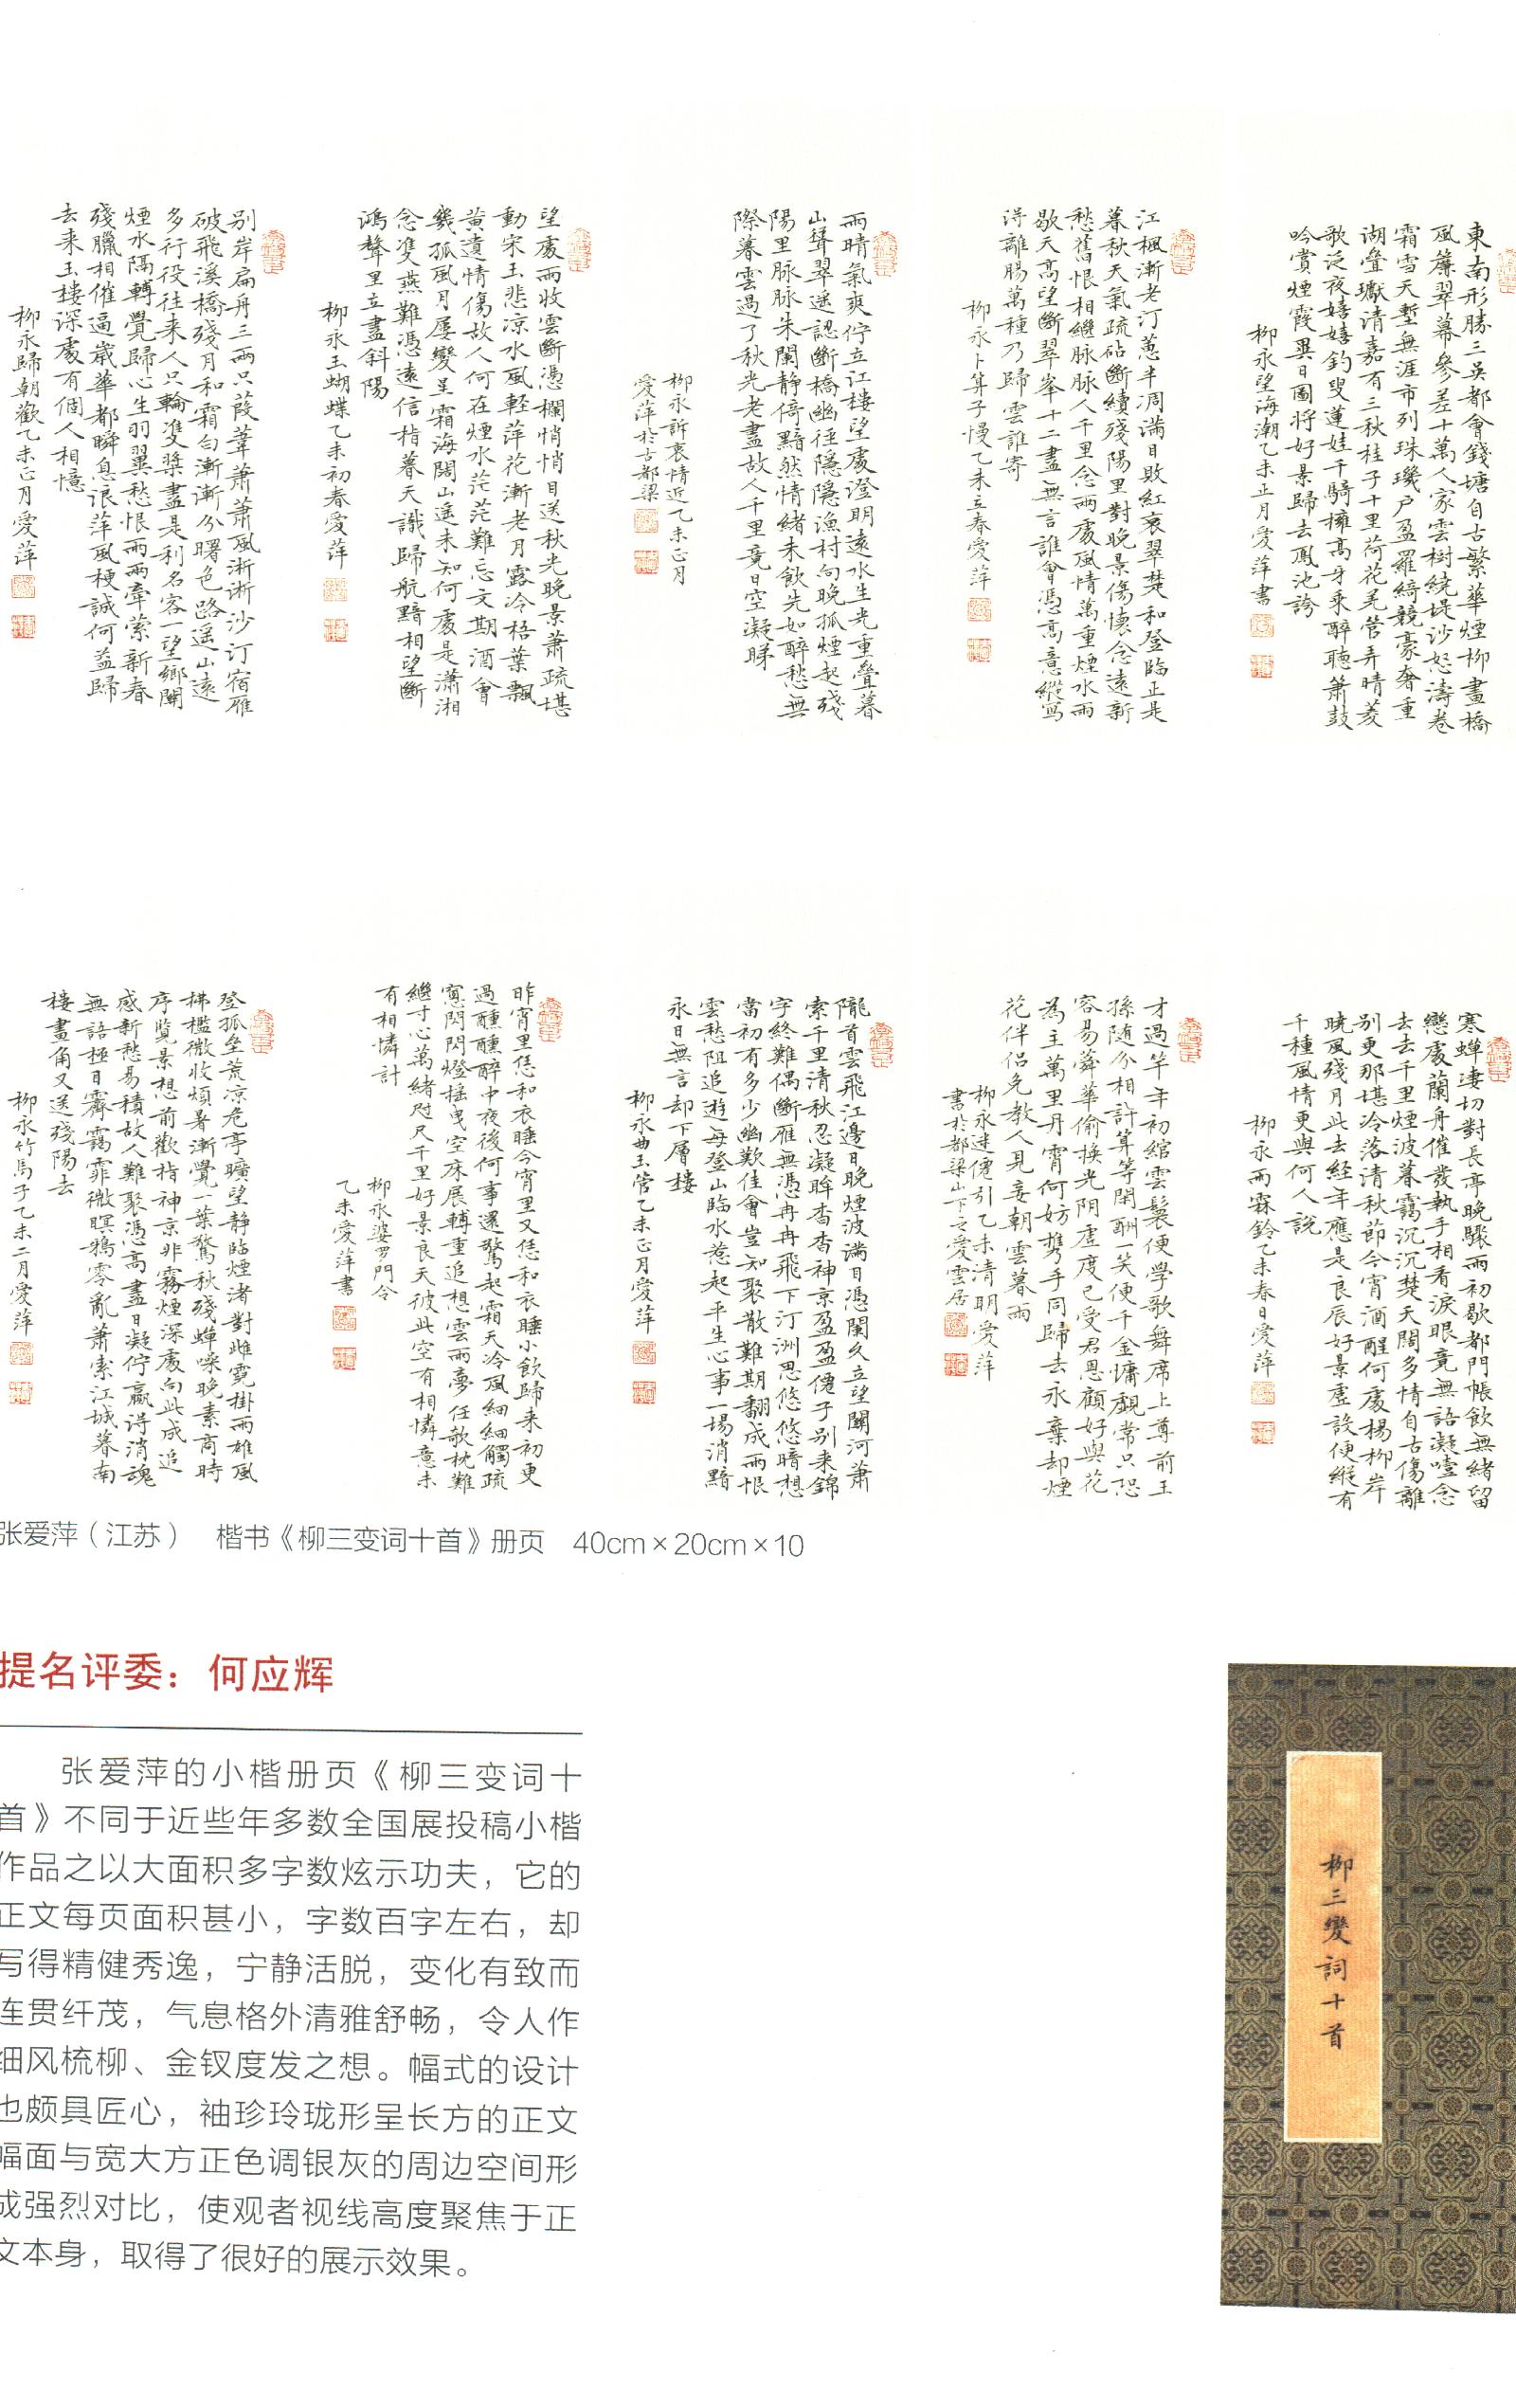 東南形勝三吳都會錢塘自古繁華煙柳畫橋
風簾翠幕參差十萬人家雲樹繞堤沙怒濤卷
霜雪天塹無涯市列珠璣户盈羅綺競豪奢重
湖疊巘清嘉有三秋桂子十里荷花羌管弄晴菱
歌泛夜嬉嬉釣叟蓮娃千騎擁高牙乘醉聽簫鼓
吟賞煙霞異日圖將好景歸去鳳池誇
柳永望海潮乙未正月愛萍書
江楓漸老汀蕙半凋滿目敗紅衰翠楚和登臨正是
暮秋天氣疏砧斷續殘陽里對晚景傷懷念遠新
愁舊恨相繼脉脉人千里念兩處風情萬重煙水雨
歇天高望斷翠峯十二盡無言誰會馮高意縱寫
淂離腸萬種乃歸雲誰寄
柳永卜算子慢乙未立春愛萍
雨晴氣爽佇立江樓望處澄明遠水生光重疊暮
山聳翠遥認斷橋幽徑隱隱漁村向晚孤煙起殘
陽里脉脉朱闌静倚黯然情緒未飲先如醉愁無
際暮雲過了秋光老盡故人千里竟日空凝睇
柳永訴衷情近乙未正月
愛萍於古都梁
望處雨收雲斷憑欄悄悄目送秋光晚景蕭疏堪
動宋玉悲凉水風輕萍花漸老月露冷梧葉飄
黄遣情傷故人何在煙水茫茫難忘文期酒會
幾孤風月屢變星霜海闊山遥未知何處是瀟湘
念雙燕難憑遠信指暮天識歸航黯相望斷
鴻聲里立盡斜陽
柳永玉蝴蝶乙未初春愛萍
别岸扁舟三兩只葭葦蕭蕭風淅淅沙汀宿雁
破飛溪橋殘月和霜白漸漸分曙色路遥山遠
多行役往来人只輪雙槳盡是利名客一望鄉關
煙水隔轉覺歸心生羽翼愁恨雨兩牽縈新春
殘臘相催逼歲華都瞬息浪萍風梗誠何益歸
去来玉樓深處有個人相憶
柳永歸朝歡乙未正月愛萍
寒蟬凄切對長亭晚驟雨初歇都門帳飲無緒留
戀處蘭舟催發執手相看淚眼竟無語凝噎念
去去千里煙波暮靄沉沉楚天闊多情自古傷離
别更那堪冷落清秋節今宵酒醒何處楊柳岸
曉風殘月此去经年應是良辰好景虛設便縱有
千種風情更與何人說
柳永雨霖鈴乙未春日愛萍
才過笄年初綰雲鬟便學歌舞席上尊前王
孫随分相許算等閑酬一笑便千金慵覷常只恐
容易蕣華偷换光阴虛度已受君恩顧好與花
為主萬里丹霄何妨携手同歸去永棄却煙
花伴侣免教人見妾朝雲暮雨
柳永迷僊引乙未清明愛萍
書於都梁山下之愛雲居
隴首雲飛江邊日晚煙波滿目憑闌久立望關河蕭
索千里清秋忍凝眸杳杳神京盈盈僊子别来錦
字終難偶斷雁無憑冉冉飛下汀洲思悠悠暗想
當初有多少幽歡佳會豈知聚散難期翻成雨恨
雲愁阻追遊每登山臨水惹起平生心事一場消黯
永日無言却下層樓
柳永曲玉管乙未正月愛萍
昨宵里恁和衣睡今宵里又恁和衣睡小飲歸来初更
過醺醺醉中夜後何事還驚起霜天冷風細細觸疏
窗閃閃燈摇曳空床展轉重追想雲雨夢任敧枕難
繼寸心萬緒咫尺千里好景良天彼此空有相憐意未
有相憐計
柳永婆罗門令
乙未愛萍書
登孤垒荒凉危亭曠望静臨煙渚對雌霓掛雨雄風
拂檻微收煩暑漸覺一葉驚秋殘蟬噪晚素商時
序覽景想前歡指神京非霧煙深處向此成追
感新愁易積故人難聚憑高盡日凝佇贏淂消魂
無語極目霽靄霏微暝鴉零亂蕭索江城暮南
樓畫角又送殘陽去
柳永竹馬子乙未二月愛萍
张爱萍（江苏） 楷书《柳三变词十首》册页 40cm×20cm×10
提名评委：何应辉
张爱萍的小楷册页《柳三变词十
首》不同于近些年多数全国展投稿小楷
作品之以大面积多字数炫示功夫，它的
正文每页面积甚小，字数百字左右，却
写得精健秀逸，宁静活脱，变化有致而
连贯纤茂，气息格外清雅舒畅，令人作
细风梳柳、金钗度发之想。幅式的设计
也颇具匠心，袖珍玲珑形呈长方的正文
幅面与宽大方正色调银灰的周边空间形
成强烈对比，使观者视线高度聚焦于正
文本身，取得了很好的展示效果。
柳三變詞十首